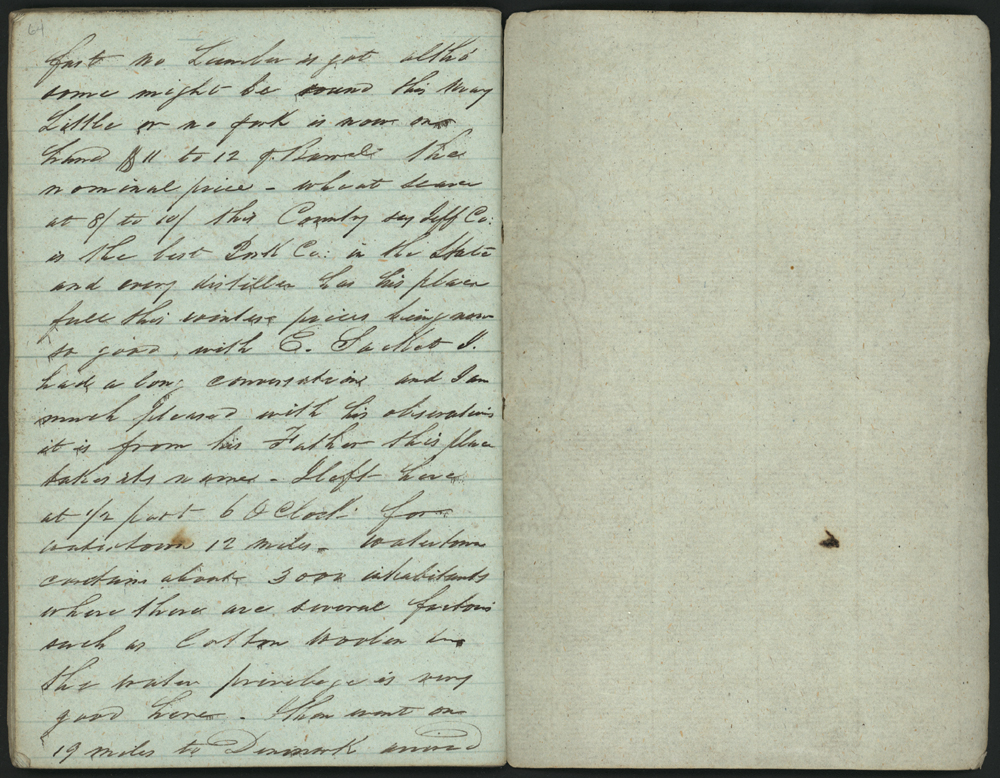 64
fast no Lumber is got altho'
some might be found this way
Little or no pork is now on
hand $11 to 12 p. Barrel the
nominal price - wheat scarce
at 8/ to 10/ this County say Jeff Co:
is the best Pork Co: in the State
and every distiller has his place
full this winter prices being now
so good, with E. Sacket I.
had a long conversation and I am
much pleased with his observations
it is from his Father this place
takes its name - I left here
at 1/2 past 6 O Clock for
watertown 12 miles - Watertown
contains about 3000 inhabitants
where there are several factories
such as Cotton Woolen &c
the water privilege is very
good here - then went on
19 miles to Denmark arrived